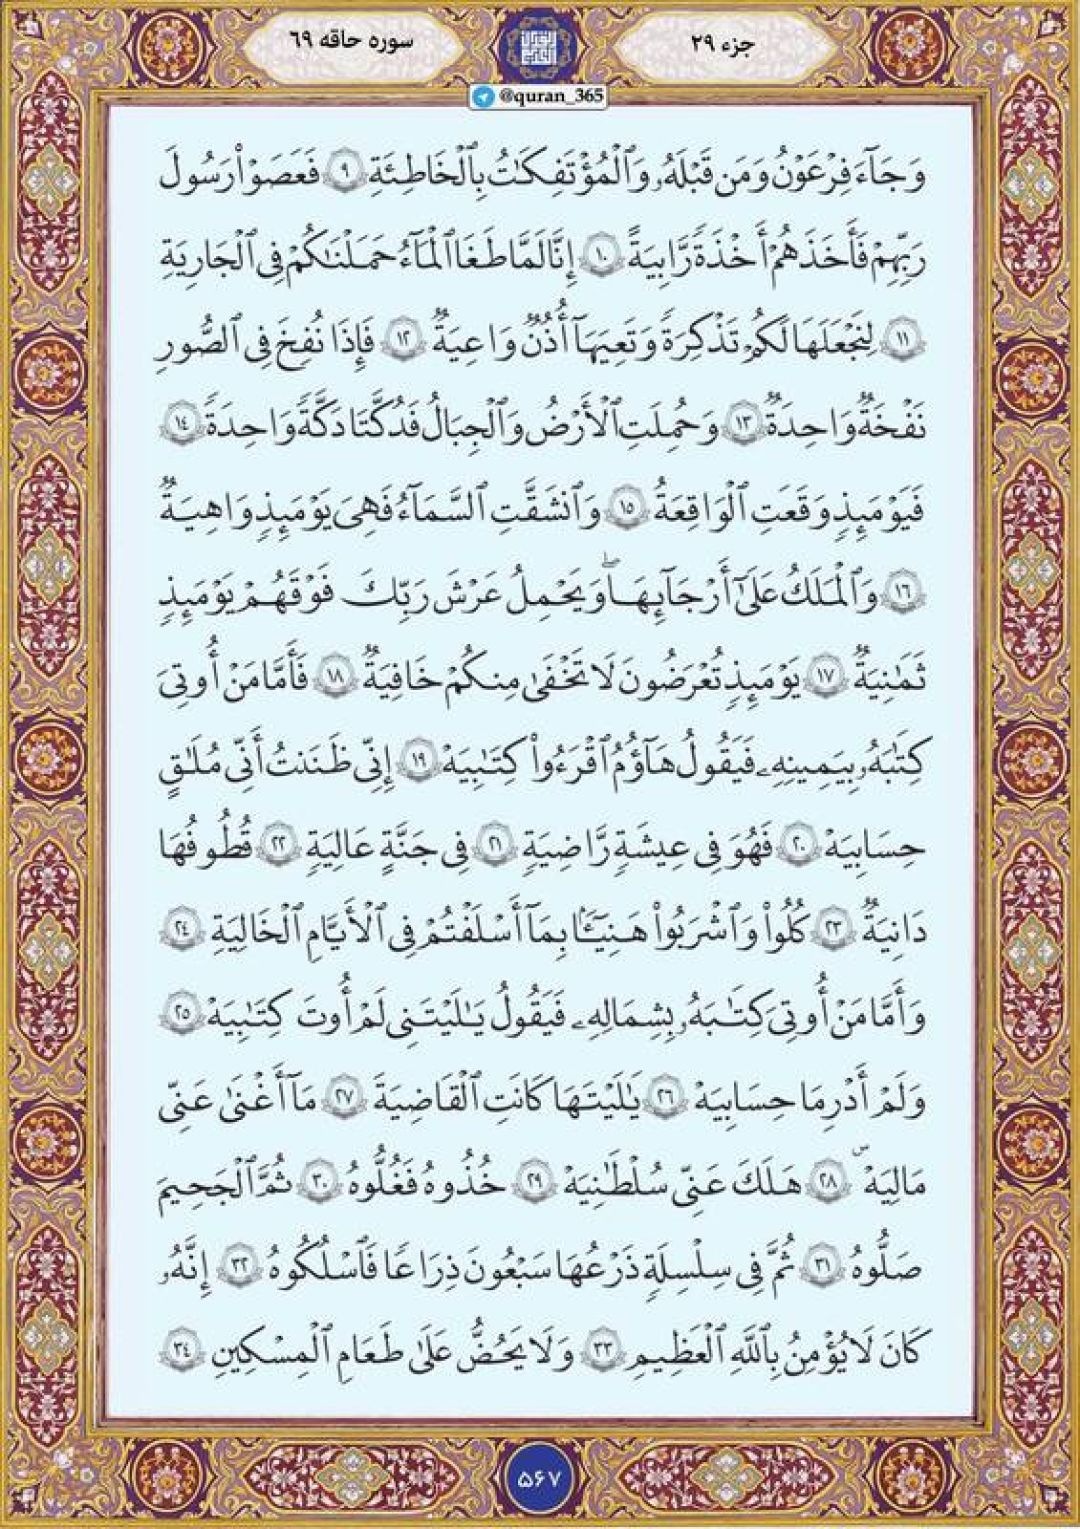 جزء ۲۹
سوره حاقه ۶۹
@quran_365
وَجَآءَ فِرْعَوْنُ وَمَن قَبْلَهُۥ وَٱلْمُؤْتَفِكَٰتُ بِٱلْخَاطِئَةِ ٩ فَعَصَوْا۟ رَسُولَ
رَبِّهِمْ فَأَخَذَهُمْ أَخْذَةً رَّابِيَةً ١٠ إِنَّا لَمَّا طَغَا ٱلْمَآءُ حَمَلْنَٰكُمْ فِى ٱلْجَارِيَةِ
١١ لِنَجْعَلَهَا لَكُمْ تَذْكِرَةً وَتَعِيَهَآ أُذُنٌ وَٰعِيَةٌ ١٢ فَإِذَا نُفِخَ فِى ٱلصُّورِ
نَفْخَةٌ وَٰحِدَةٌ ١٣ وَحُمِلَتِ ٱلْأَرْضُ وَٱلْجِبَالُ فَدُكَّتَا دَكَّةً وَٰحِدَةً ١٤
فَيَوْمَئِذٍ وَقَعَتِ ٱلْوَاقِعَةُ ١٥ وَٱنشَقَّتِ ٱلسَّمَآءُ فَهِىَ يَوْمَئِذٍ وَاهِيَةٌ
١٦ وَٱلْمَلَكُ عَلَىٰٓ أَرْجَآئِهَا ۚ وَيَحْمِلُ عَرْشَ رَبِّكَ فَوْقَهُمْ يَوْمَئِذٍ
ثَمَٰنِيَةٌ ١٧ يَوْمَئِذٍ تُعْرَضُونَ لَا تَخْفَىٰ مِنكُمْ خَافِيَةٌ ١٨ فَأَمَّا مَنْ أُوتِىَ
كِتَٰبَهُۥ بِيَمِينِهِۦ فَيَقُولُ هَآؤُمُ ٱقْرَءُوا۟ كِتَٰبِيَهْ ١٩ إِنِّى ظَنَنتُ أَنِّى مُلَٰقٍ
حِسَابِيَهْ ٢٠ فَهُوَ فِى عِيشَةٍ رَّاضِيَةٍ ٢١ فِى جَنَّةٍ عَالِيَةٍ ٢٢ قُطُوفُهَا
دَانِيَةٌ ٢٣ كُلُوا۟ وَٱشْرَبُوا۟ هَنِيٓـًٔۢا بِمَآ أَسْلَفْتُمْ فِى ٱلْأَيَّامِ ٱلْخَالِيَةِ ٢٤
وَأَمَّا مَنْ أُوتِىَ كِتَٰبَهُۥ بِشِمَالِهِۦ فَيَقُولُ يَٰلَيْتَنِى لَمْ أُوتَ كِتَٰبِيَهْ ٢٥
وَلَمْ أَدْرِ مَا حِسَابِيَهْ ٢٦ يَٰلَيْتَهَا كَانَتِ ٱلْقَاضِيَةَ ٢٧ مَآ أَغْنَىٰ عَنِّى
مَالِيَهْ ۜ ٢٨ هَلَكَ عَنِّى سُلْطَٰنِيَهْ ٢٩ خُذُوهُ فَغُلُّوهُ ٣٠ ثُمَّ ٱلْجَحِيمَ
صَلُّوهُ ٣١ ثُمَّ فِى سِلْسِلَةٍ ذَرْعُهَا سَبْعُونَ ذِرَاعًا فَٱسْلُكُوهُ ٣٢ إِنَّهُۥ
كَانَ لَا يُؤْمِنُ بِٱللَّهِ ٱلْعَظِيمِ ٣٣ وَلَا يَحُضُّ عَلَىٰ طَعَامِ ٱلْمِسْكِينِ ٣٤
۵۶۷